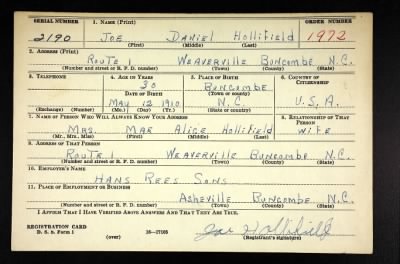 SERIAL NUMBER 1. NAME (Print) ORDER NUMBER
2190 JOE DANIEL HOLLIFIELD 1972
(First) (Middle) (Last)
2. ADDRESS (Print)
ROUTE 1 WEAVERVILLE BUNCOMBE N.C.
(Number and street or R. F. D. number) (Town) (County) (State)
3. TELEPHONE 4. AGE IN YEARS 5. PLACE OF BIRTH 6. COUNTRY OF CITIZENSHIP
30 BUNCOMBE
DATE OF BIRTH (Town or county)
MAY 12 1910 N.C. U.S.A.
(Exchange) (Number) (Mo.) (Day) (Yr.) (State or country)
7. NAME OF PERSON WHO WILL ALWAYS KNOW YOUR ADDRESS 8. RELATIONSHIP OF THAT PERSON
MRS. MAE ALICE HOLLIFIELD WIFE
(Mr., Mrs., Miss) (First) (Middle) (Last)
9. ADDRESS OF THAT PERSON
ROUTE 1 WEAVERVILLE BUNCOMBE N.C.
(Number and street or R. F. D. number) (Town) (County) (State)
10. EMPLOYER'S NAME
HANS REES SONS
11. PLACE OF EMPLOYMENT OR BUSINESS
Asheville BUNCOMBE N.C.
(Number and street or R. F. D. number) (Town) (County) (State)
I AFFIRM THAT I HAVE VERIFIED ABOVE ANSWERS AND THAT THEY ARE TRUE.
REGISTRATION CARD
D. S. S. Form 1 (over) 16-17105 Joe Hollifield
(Registrant's signature)